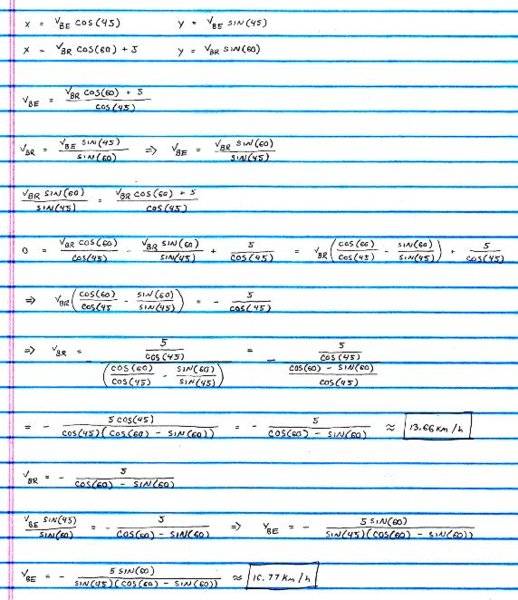 x = V_BE cos(45) y = V_BE sin(45)
x - V_BR cos(60) + 5 y = V_BR sin(60)
V_BE = (V_BR cos(60) + 5) / cos(45)
V_BR = V_BE sin(45) / sin(60) ⇒ V_BE = V_BR sin(60) / sin(45)
V_BR sin(60) / sin(45) = (V_BR cos(60) + 5) / cos(45)
0 = V_BR cos(60) / cos(45) - V_BR sin(60) / sin(45) + 5 / cos(45) = V_BR (cos(60) / cos(45) - sin(60) / sin(45)) + 5 / cos(45)
⇒ V_BR (cos(60) / cos(45 - sin(60) / sin(45)) = - 5 / cos(45)
⇒ V_BR = - (5 / cos(45)) / (cos(60) / cos(45) - sin(60) / sin(45)) = - (5 / cos(45)) / ((cos(60) - sin(60)) / cos(45))
= - 5 cos(45) / (cos(45)(cos(60) - sin(60))) = - 5 / (cos(60) - sin(60)) ≈ 13.66 km/h
V_BR = - 5 / (cos(60) - sin(60))
V_BE sin(45) / sin(60) = - 5 / (cos(60) - sin(60)) ⇒ V_BE = - 5 sin(60) / (sin(45)(cos(60) - sin(60)))
V_BE = - 5 sin(60) / (sin(45)(cos(60) - sin(60))) ≈ 16.77 km/h